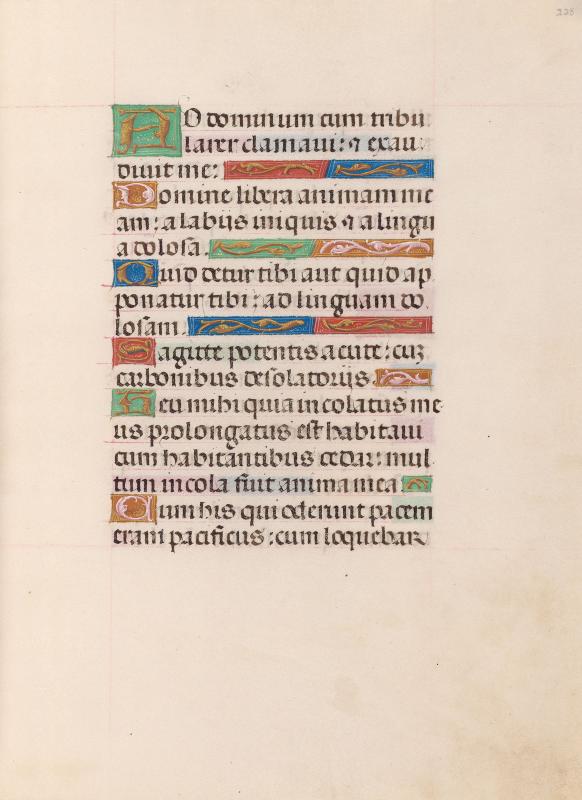 228
AD dominum cum tribu
larer clamaui: ⁊ exau
diuit me:
Domine libera animam me
am: a labiis iniquis ⁊ a lingu
a dolosa.
Quid detur tibi aut quid ap
ponatur tibi: ad linguam do
losam.
Sagitte potentis acute: cuꝫ
carbonibus desolatoriis.
Heu mihi quia incolatus me
us prolongatus est habitaui
cum habitantibus cedar: mul
tum incola fuit anima mea
Cum his qui oderunt pacem
eram pacificus: cum loquebar